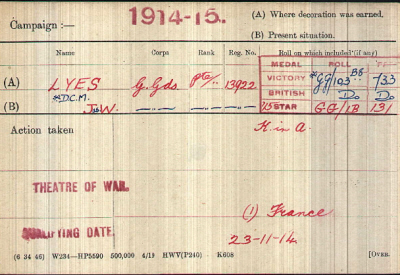 1914-15.
Campaign :—
(A) Where decoration was earned.
(B) Present situation.
Name Corps Rank Reg. No. Roll on which included (if any)
MEDAL ROLL
(A) LYES G. Gds. Pte/.. 13922 VICTORY *GG/103 B6 733
(B) *D.C.M. J. W. — " — — " — BRITISH Do Do
15 STAR GG/1B 131
Action taken K. in A.
THEATRE OF WAR.
(1) France
QUALIFYING DATE.
23-11-14.
(6 34 46) W234—HP5590 500,000 4/19 HWV(P240) K608 [OVER.